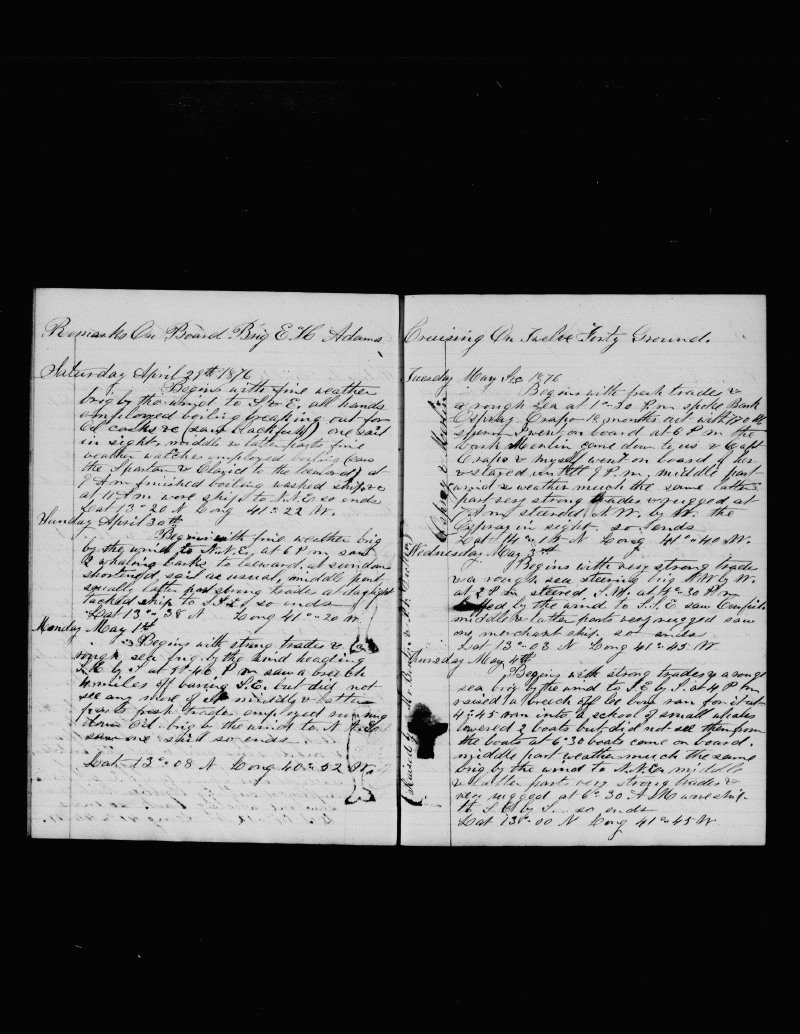 Remarks On Board Brig E. H. Adams
Saturday April 29th 1876
Begins with fine weather
brig by the wind to S & E. all hands
employed boiling breaking out for
Oil casks &c (saw blackfish) one sail
in sight, middle & latter parts fine
weather watches employed boiling (saw
the Spartan & to leeward) at
9 A m finished boiling washed ship &c
at 11 A m wore ship to N.N.E so ends
Lat 13°-20 N Long 41°-22 W.
Sunday April 30th
Begins with fine weather brig
by the wind to N.N.E, at 6 P m saw
2 whaling barks to leeward, at sundown
shortened sail as usual, middle part
squally latter part strong trades at daylight
tacked ship to so ends
Lat 13°-38 N Long 41°-20 W.
Monday May 1st
Begins with strong trades & a
rough sea brig by the wind heading
S.E by S at P m saw a breach
4 miles off baring S.E. but did not
see any more of it middle & latter
parts fresh trades employed running
down Oil. brig by the wind to N
saw one sail so ends
Lat 13°-08 N Long 40°-52 W.
Cruising On Twelve Forty Ground.
Tuesday May 1876
Begins with fresh trades &
a rough sea at 1°-30 P.m spoke Bark
Osprey Crapo 18 months out with 170 bbl
sperm I went on board at 6 P m the
Bark Merlin came down to us & Capt
Crapo & myself went on board of her
& stayed untill 9 P.m, middle part
wind & weather much the same latter
part very strong trades & rugged at
A m steered N W. by W. the
Osprey in sight, so ends
Lat 14°-15 N Long 41°-40 W.
Osprey & Merlin
Wednesday May 3rd
Begins with very strong trades
& a rough sea steering brig N W by W.
at 2 P m steered S.W. at 4°-30 P.m
luffed by the wind to S.S.E saw
middle & latter parts very rugged saw
one merchant ship. so ends
Lat 13°-03 N Long 41°-45 W.
Thursday May 4th
Begins with strong trades & a rough
sea brig by the wind to S.E by S. at 4 P m
raised a breach off lee bow ran for it at
4°-45 ran into a school of small whales
lowered 2 boats but did not see them from
the boats at 6°-30 boats came on board.
middle part weather much the same
brig by the wind to N.N.E, middle
& latter parts very strong trades &
very rugged at 6°-30 A M wore ship
to S.E by S. so ends
Lat 13°-00 N Long 41°-45 W
(Raised by Mr.